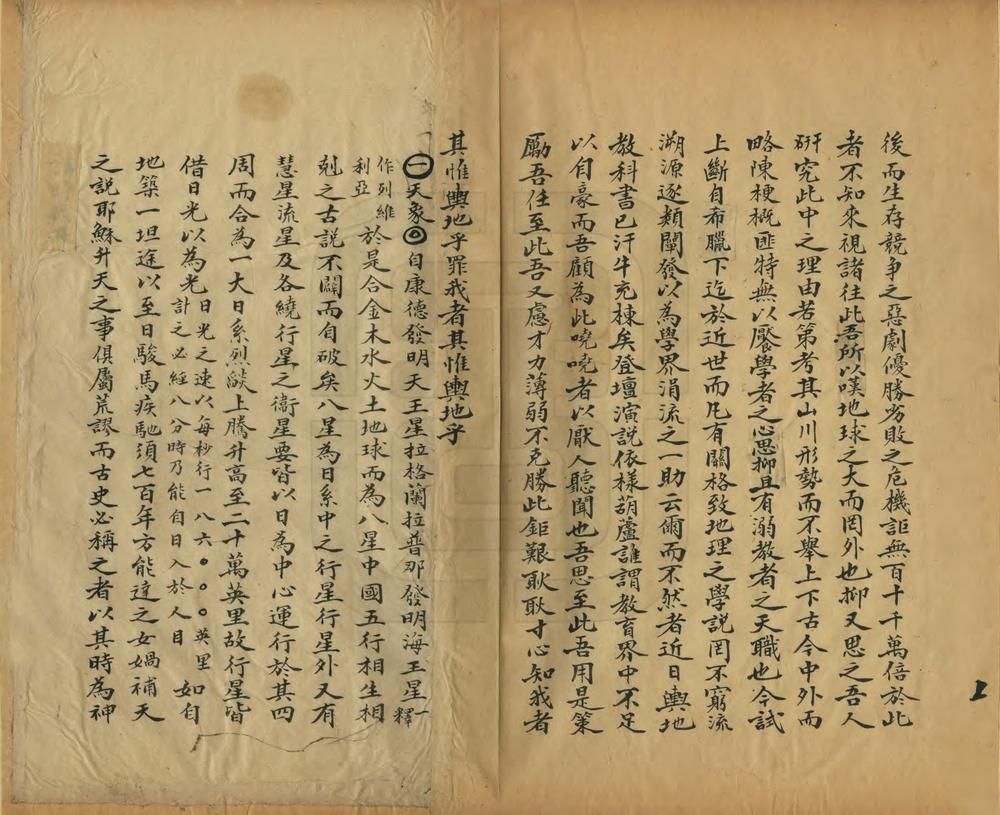 後而生存競争之惡劇優勝劣敗之危機詎無百十千萬倍於此
者不知來視諸往此吾所以嘆地球之大而罔外也抑又思之吾人
研究此中之理由若第考其山川形勢而不舉上下古今中外而
略陳梗概匪特無以饜學者之心思抑且有溺教者之天職也今試
上斷自希臘下迄於近世而凡有關格致地理之學説罔不窮流
溯源逐類闡發以為學界涓流之一助云爾而不然者近日輿地
教科書已汗牛充棟矣登壇演說依樣葫蘆誰謂教育界中不足
以自豪而吾顧為此嘵嘵者以厭人聽聞也吾思至此吾用是策
勵吾任至此吾又慮才力薄弱不克勝此鉅艱耿耿寸心知我者
其惟輿地乎罪我者其惟輿地乎
㊀天象◎自康德發明天王星拉格蘭拉普那發明海王星一釋
作列維利亞於是合金木水火土地球而為八星中國五行相生相
剋之古説不闢而自破矣八星為日系中之行星行星外又有
慧星流星及各繞行星之衛星要皆以日為中心運行於其四
周而合為一大日系烈燄上騰升高至二十萬英里故行星皆
借日光以為光日光之速以每秒行一八六〇〇〇英里計之必經八分時乃能自日入於人目如自
地築一坦途以至日駿馬疾馳須七百年方能達之女媧補天
之説耶穌升天之事俱屬荒謬而古史必稱之者以其時為神
上